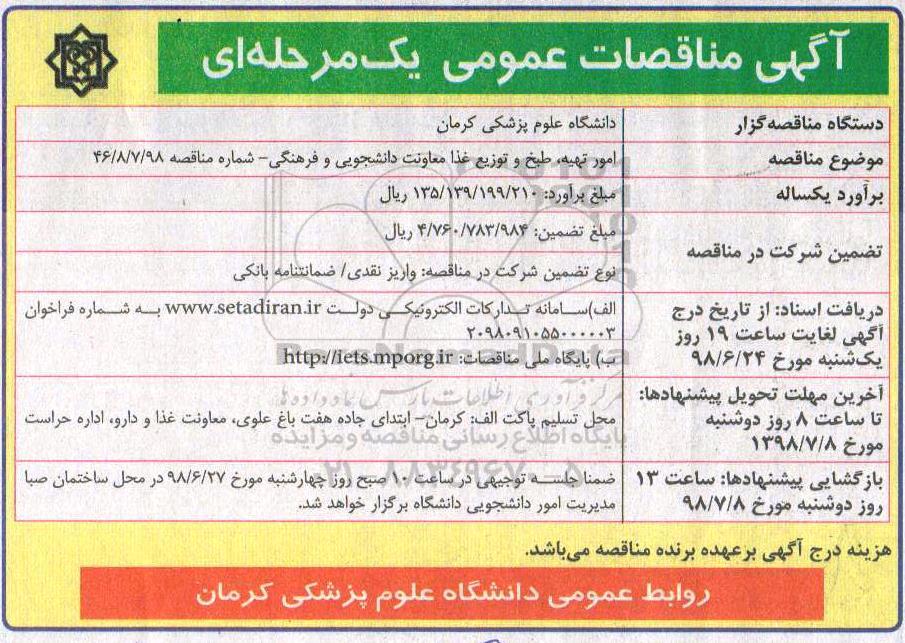 آگهی مناقصات عمومی یک‌مرحله‌ای
دستگاه مناقصه‌گزار
دانشگاه علوم پزشکی کرمان
موضوع مناقصه
امور تهیه، طبخ و توزیع غذا معاونت دانشجویی و فرهنگی- شماره مناقصه ۴۶/۸/۷/۹۸
برآورد یکساله
مبلغ برآورد: ۱۳۵/۱۳۹/۱۹۹/۲۱۰ ریال
تضمین شرکت در مناقصه
مبلغ تضمین: ۴/۷۶۰/۷۸۳/۹۸۴ ریال
نوع تضمین شرکت در مناقصه: واریز نقدی/ ضمانتنامه بانکی
دریافت اسناد: از تاریخ درج
آگهی لغایت ساعت ۱۹ روز
یک‌شنبه مورخ ۹۸/۶/۲۴
الف)سامانه تدارکات الکترونیکی دولت www.setadiran.ir به شماره فراخوان
۲۰۹۸۰۹۱۰۵۵۰۰۰۰۰۳
ب) پایگاه ملی مناقصات: http://iets.mporg.ir
آخرین مهلت تحویل پیشنهادها:
تا ساعت ۸ روز دوشنبه
مورخ ۱۳۹۸/۷/۸
محل تسلیم پاکت الف: کرمان- ابتدای جاده هفت باغ علوی، معاونت غذا و دارو، اداره حراست
بازگشایی پیشنهادها: ساعت ۱۳
روز دوشنبه مورخ ۹۸/۷/۸
ضمنا جلسه توجیهی در ساعت ۱۰ صبح روز چهارشنبه مورخ ۹۸/۶/۲۷ در محل ساختمان صبا
مدیریت امور دانشجویی دانشگاه برگزار خواهد شد.
هزینه درج آگهی برعهده برنده مناقصه می‌باشد.
روابط عمومی دانشگاه علوم پزشکی کرمان
ParsNamadData
مرکز فرآوری اطلاعات پارس نماد داده‌ها
پایگاه اطلاع رسانی مناقصه و مزایده
۰۲۱-۸۸۳۴۹۶۷۰-۵